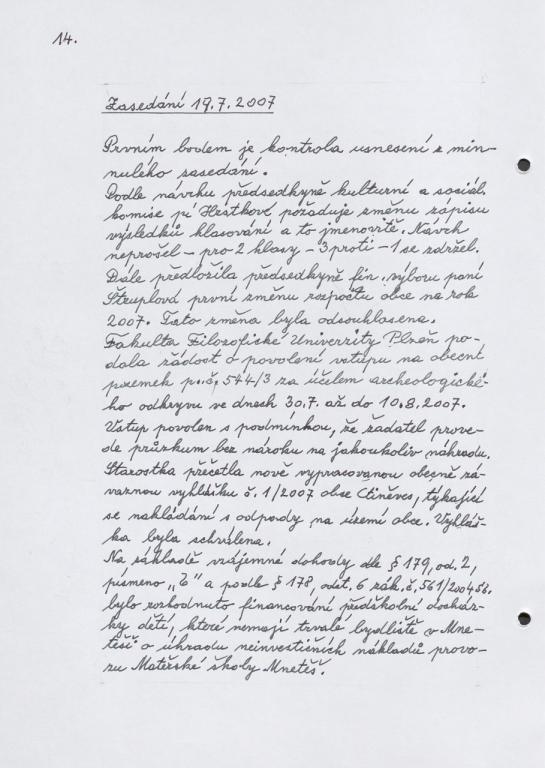 14.
Zasedání 19.7.2007
Prvním bodem je kontrola usnesení z min-
nulého zasedání.
Podle návrhu předsedkyně kulturní a sociál.
komise pí Hrstkové požaduje změnu zápisu
výsledků hlasování a to jmenovitě. Návrh
neprošel - pro 2 hlasy - 3 proti - 1 se zdržel.
Dále předložila předsedkyně fin. výboru paní
Štruplová první změnu rozpočtu obce na rok
2007. Tato změna byla odsouhlasena.
Fakulta Filozofické Univerzity Plzeň po-
dala žádost o povolení vstupu na obecní
pozemek p.č. 544/3 za účelem archeologické-
ho odkryvu ve dnech 30.7. až do 10.8.2007.
Vstup povolen s podmínkou, že žadatel prove-
de průzkum bez nároku na jakoukoliv náhradu.
Starostka přečetla nově vypracovanou obecně zá-
vaznou vyhlášku č. 1/2007 obce Ctiněves, týkající
se nakládání s odpady na území obce. Vyhláš-
ka byla schválena.
Na základě vzájemné dohody dle § 179, od. 2,
písmeno "b" a podle § 178, odst. 6 zák. č. 561/2004 Sb.
bylo rozhodnuto financování předškolní docház-
ky dětí, které nemají trvalé bydliště v Mne-
teši o úhradu neinvestičních nákladů provo-
zu Mateřské školy Mneteš.